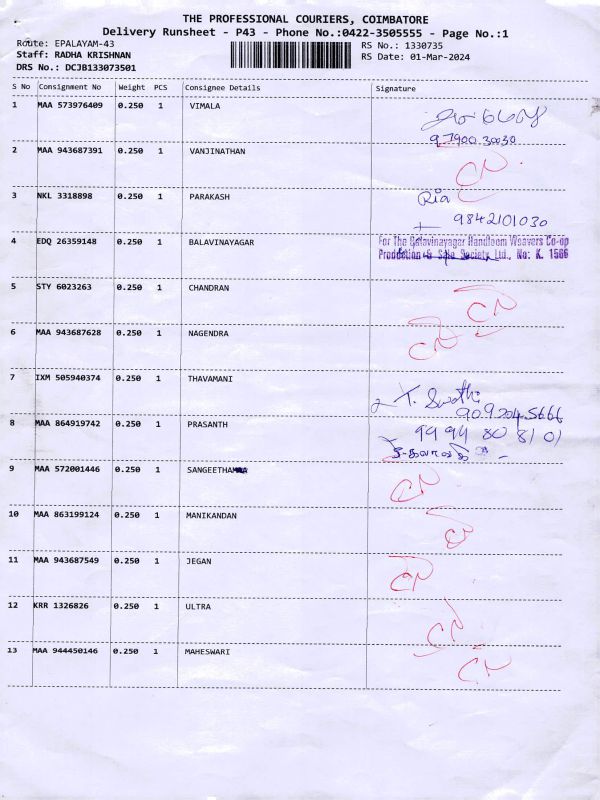 THE PROFESSIONAL COURIERS, COIMBATORE
Delivery Runsheet - P43 - Phone No.:0422-3505555 - Page No.:1
Route: EPALAYAM-43 RS No.: 1330735
Staff: RADHA KRISHNAN RS Date: 01-Mar-2024
DRS No.: DCJB133073501
S No Consignment No Weight PCS Consignee Details Signature
1 MAA 573976409 0.250 1 VIMALA
97900 30030
2 MAA 943687391 0.250 1 VANJINATHAN CN
3 NKL 3318898 0.250 1 PARAKASH Ria
9842101030
4 EDQ 26359148 0.250 1 BALAVINAYAGAR For The Balavinayagar Handloom Weavers Co-op
Production & Sale Society Ltd., No: K. 1566
5 STY 6023263 0.250 1 CHANDRAN CN
6 MAA 943687628 0.250 1 NAGENDRA CN
7 IXM 505940374 0.250 1 THAVAMANI T. Swathi
8 MAA 864919742 0.250 1 PRASANTH 9994 80 81 01
9 MAA 572001446 0.250 1 SANGEETHA CN
10 MAA 863199124 0.250 1 MANIKANDAN CN
11 MAA 943687549 0.250 1 JEGAN CN
12 KRR 1326826 0.250 1 ULTRA CN
13 MAA 944450146 0.250 1 MAHESWARI CN